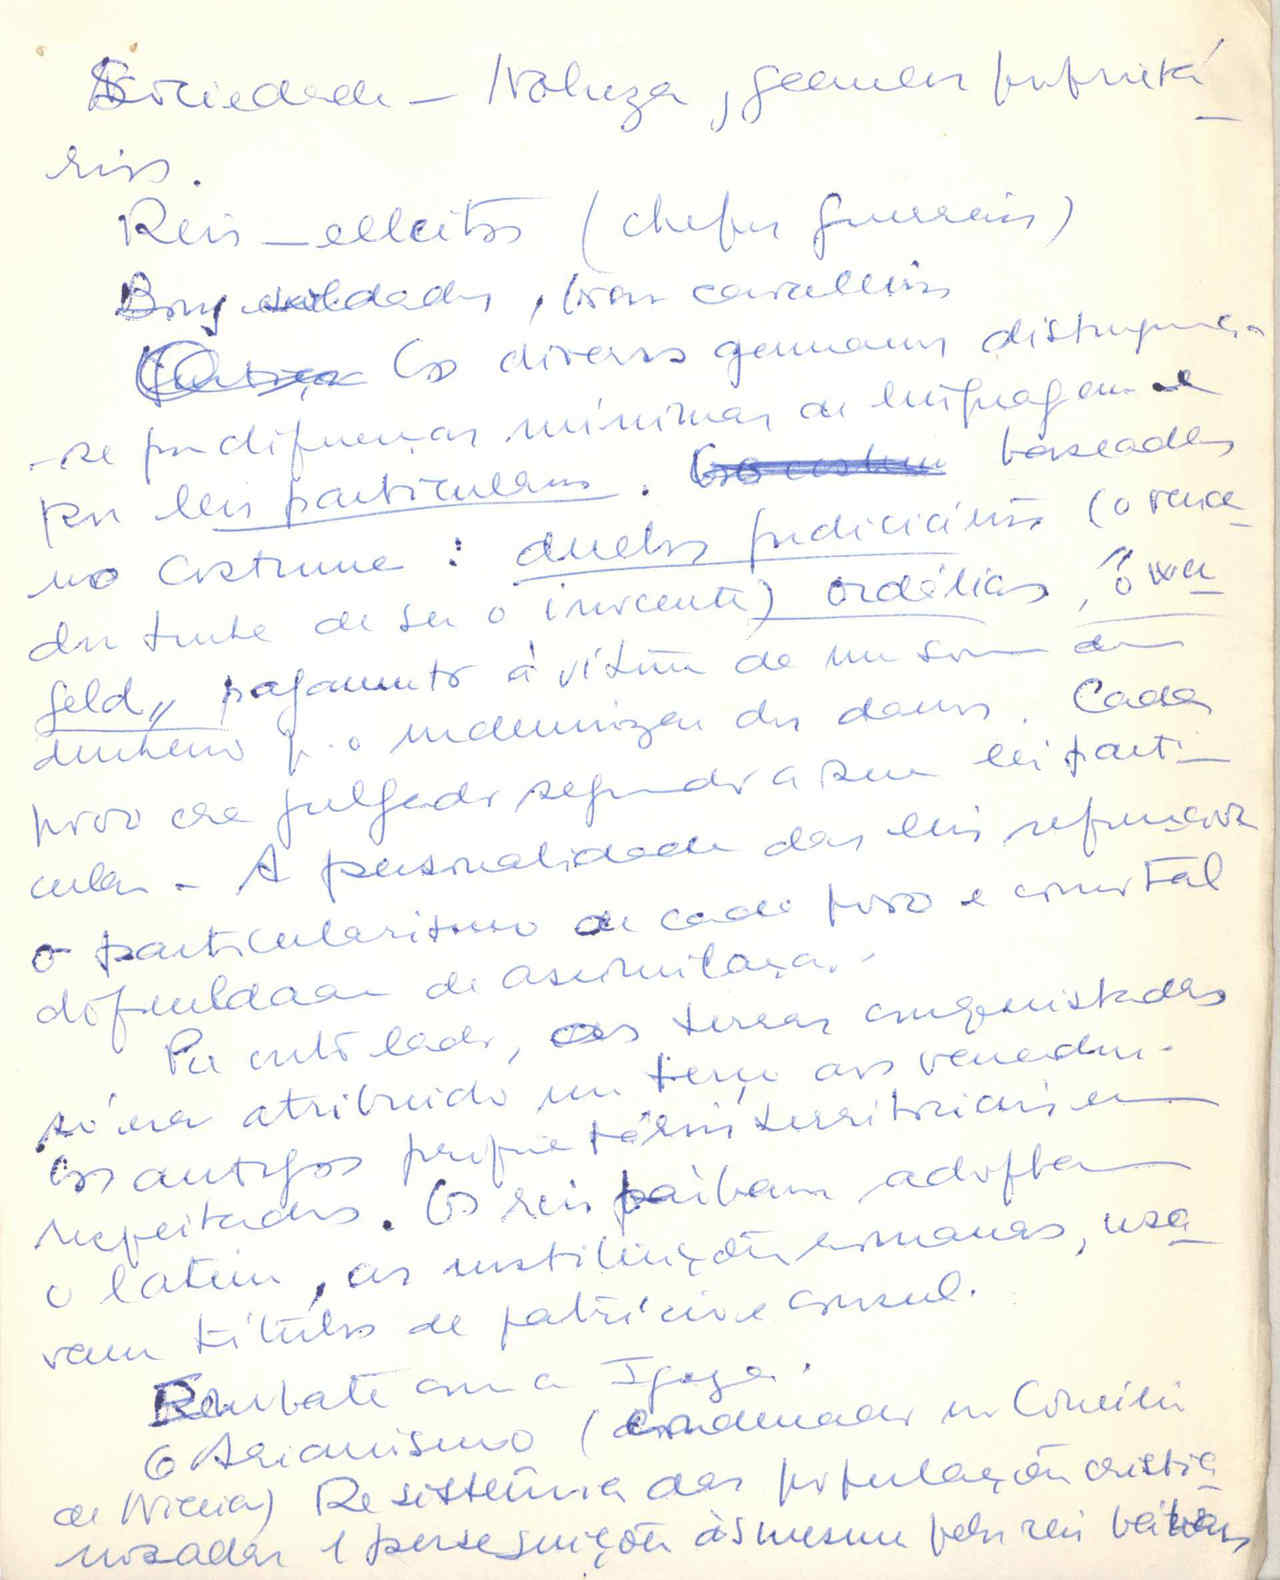 Sociedade – Nobreza, grandes proprietá-
rios.
Reis – eleitos (chefes guerreiros)
Bons soldados, bons cavaleiros
Os diversos germanos distinguem-
-se por diferenças mínimas de linguagem e
por leis particulares. baseadas
no costume: duelos judiciários (o vence-
dor tinha de ser o inocente) ordálias, "o wer-
geld" pagamento à vítima de um soma em
dinheiro p.ª o indemnizar dos danos. Cada
povo era julgado segundo a sua lei parti-
cular – A personalidade das leis reforçava
o particularismo de cada povo e constitui
dificuldade de assimilação.
Por outro lado, as terras conquistadas
só era atribuído um terço aos vencedores.
Os antigos proprietários territoriais eram
respeitados. Os reis bárbaros adoptam
o latim, as instituições romanas, usa-
vam títulos de patrício e consul.
Combate com a Igreja.
O Arianismo (condenado no Concílio
de Niceia) Resistência das populações cristia-
nizadas e perseguições às mesmas pelos reis bárbaros